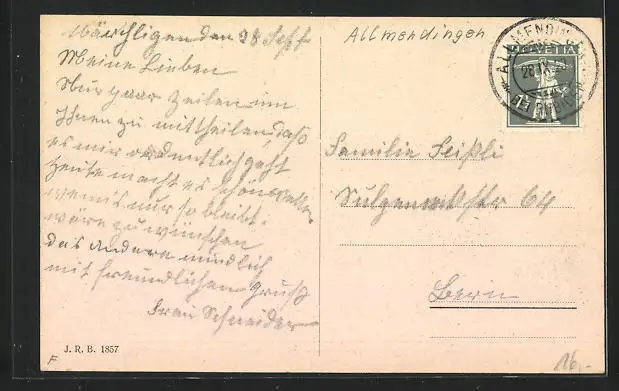 Wäichligen den 28 Sept
Meine Lieben
Nur paar Zeilen um
Ihnen zu mittheilen, daß
es mir ordentlich geht
heute macht es schön
wenn's nur so bleibt.
wäre zu wünschen
das Andere mündlich
mit freundlichen Gruß
Frau Schneider
J. R. B. 1857
F
Allmendingen
HELVETIA
ALLMENDINGEN
Familie
64
Bern
16,-